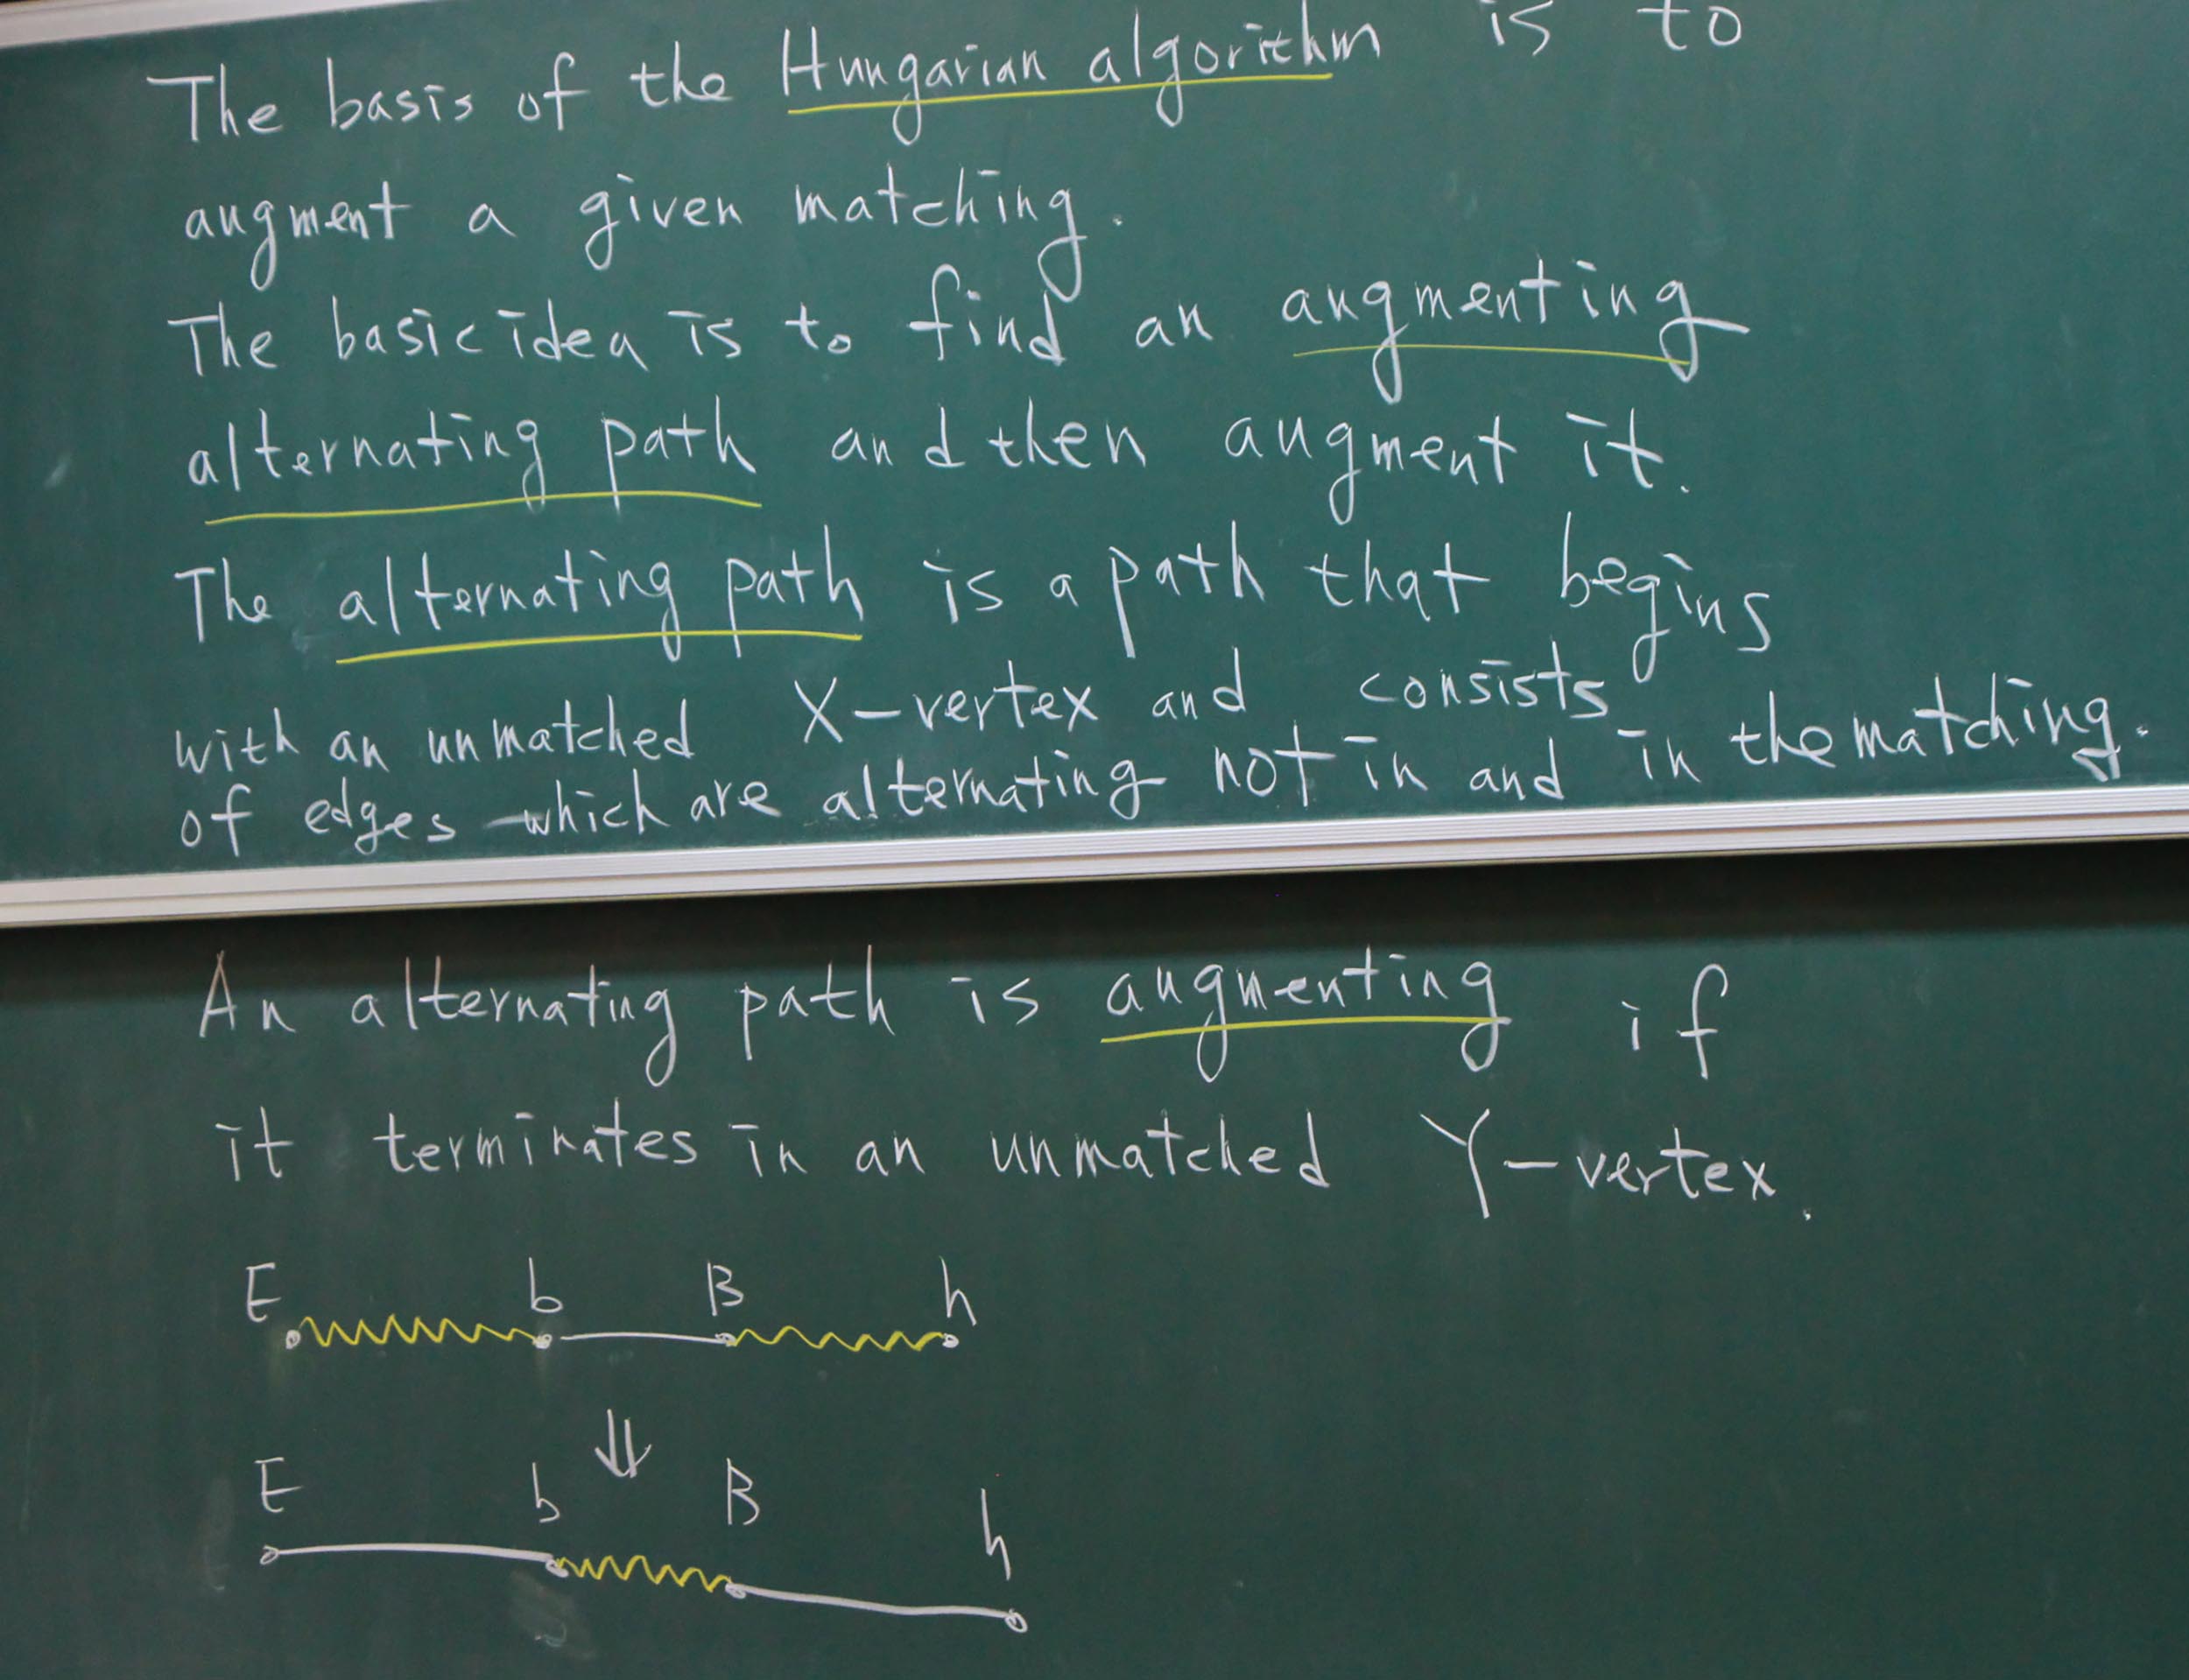 The basis of the Hungarian algorithm is to
augment a given matching.
The basic idea is to find an augmenting
alternating path and then augment it.
The alternating path is a path that begins
with an unmatched X-vertex and consists
of edges which are alternating not in and in the matching.
An alternating path is augmenting if
it terminates in an unmatched Y-vertex.
E b B h
⇓
E b B h